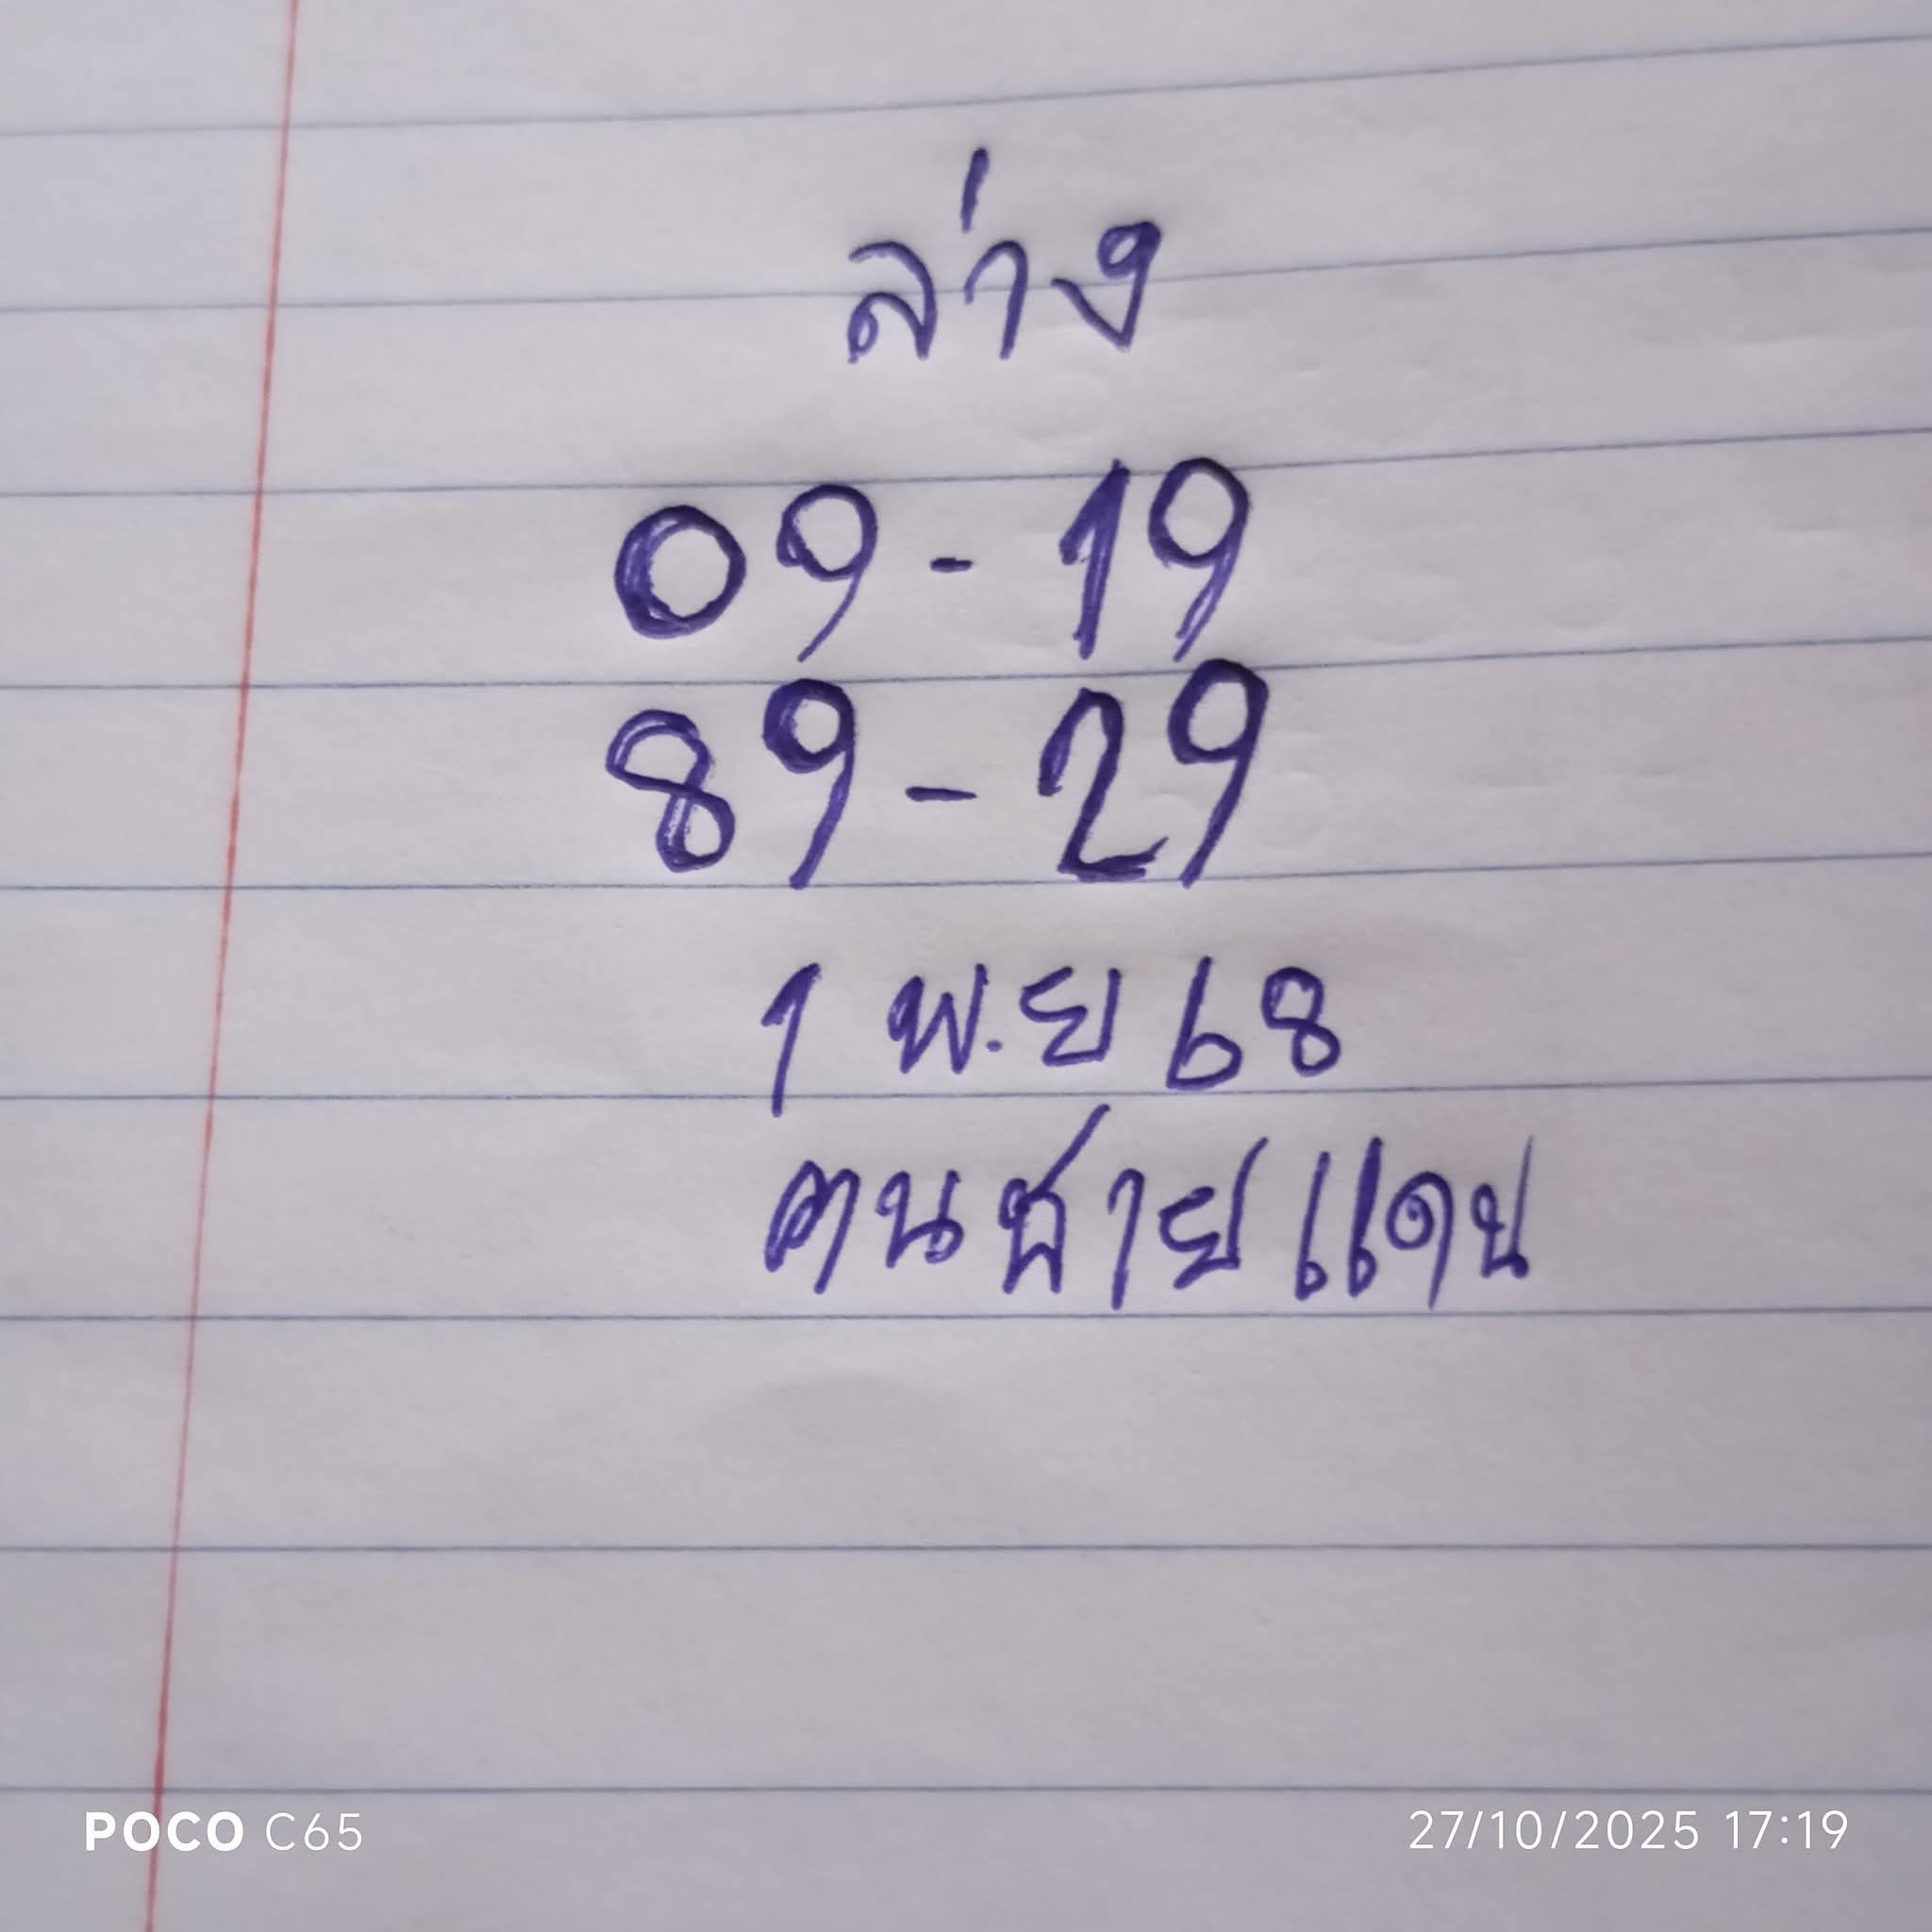 ล่าง
09 - 19
89 - 29
1 พ.ย 68
ฅนชายแดน
POCO C65
27/10/2025 17:19